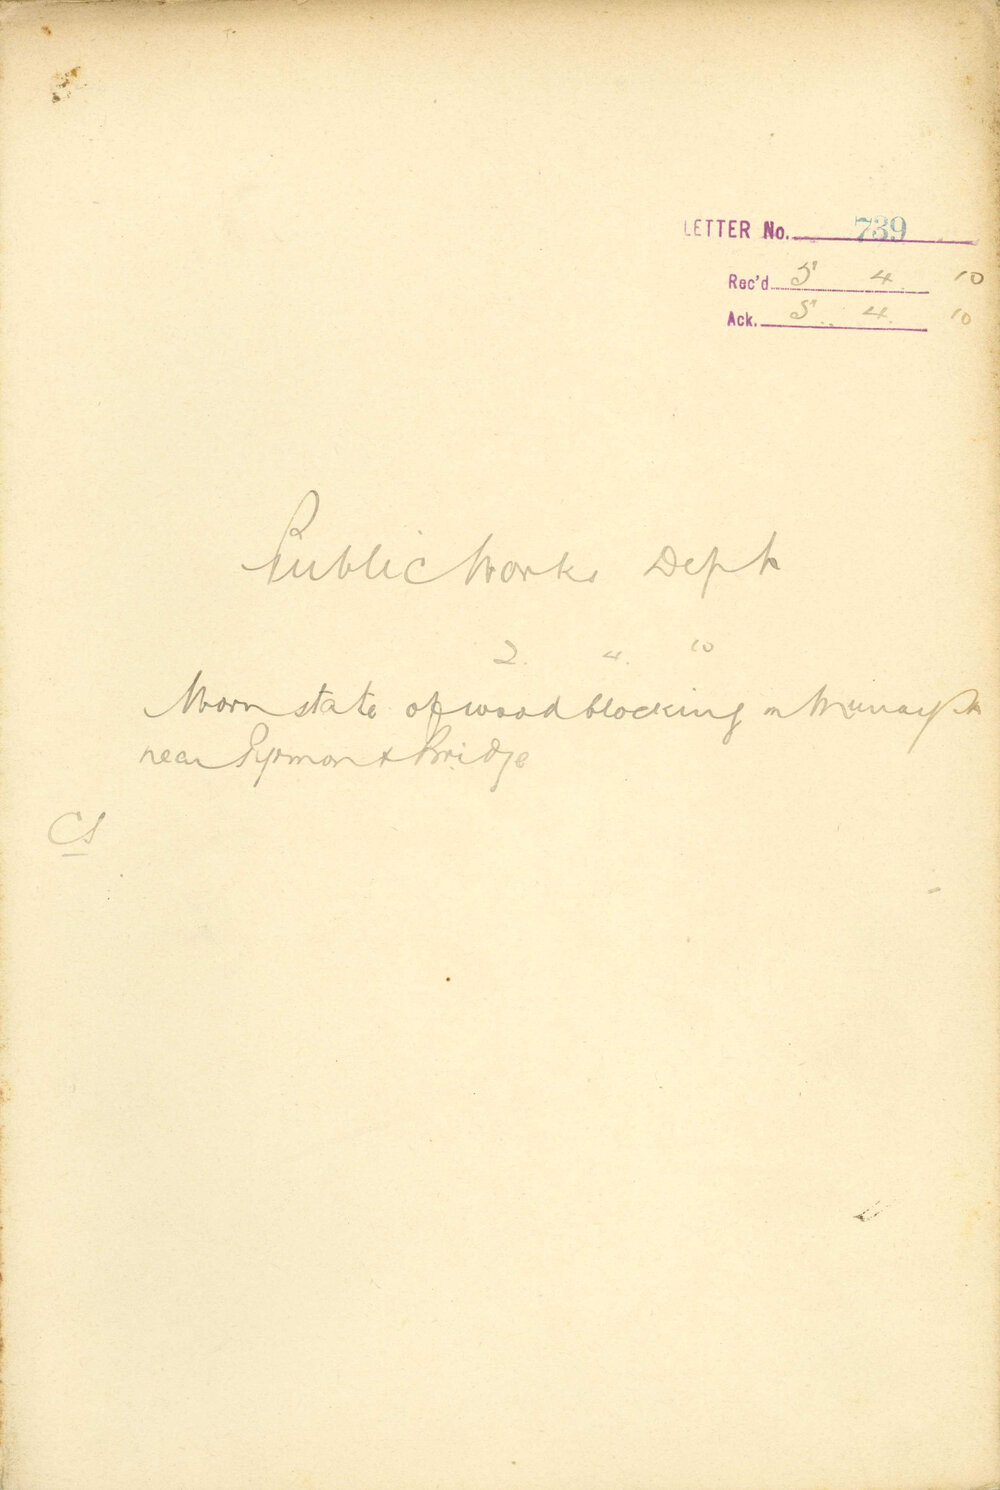 LETTER No. 739
Rec'd 5 4 10
Ack. 5. 4. 10
Public Works Dept
2. 4. 10
Worn state of wood blocking in Murray St
near Pyrmont Bridge
CS